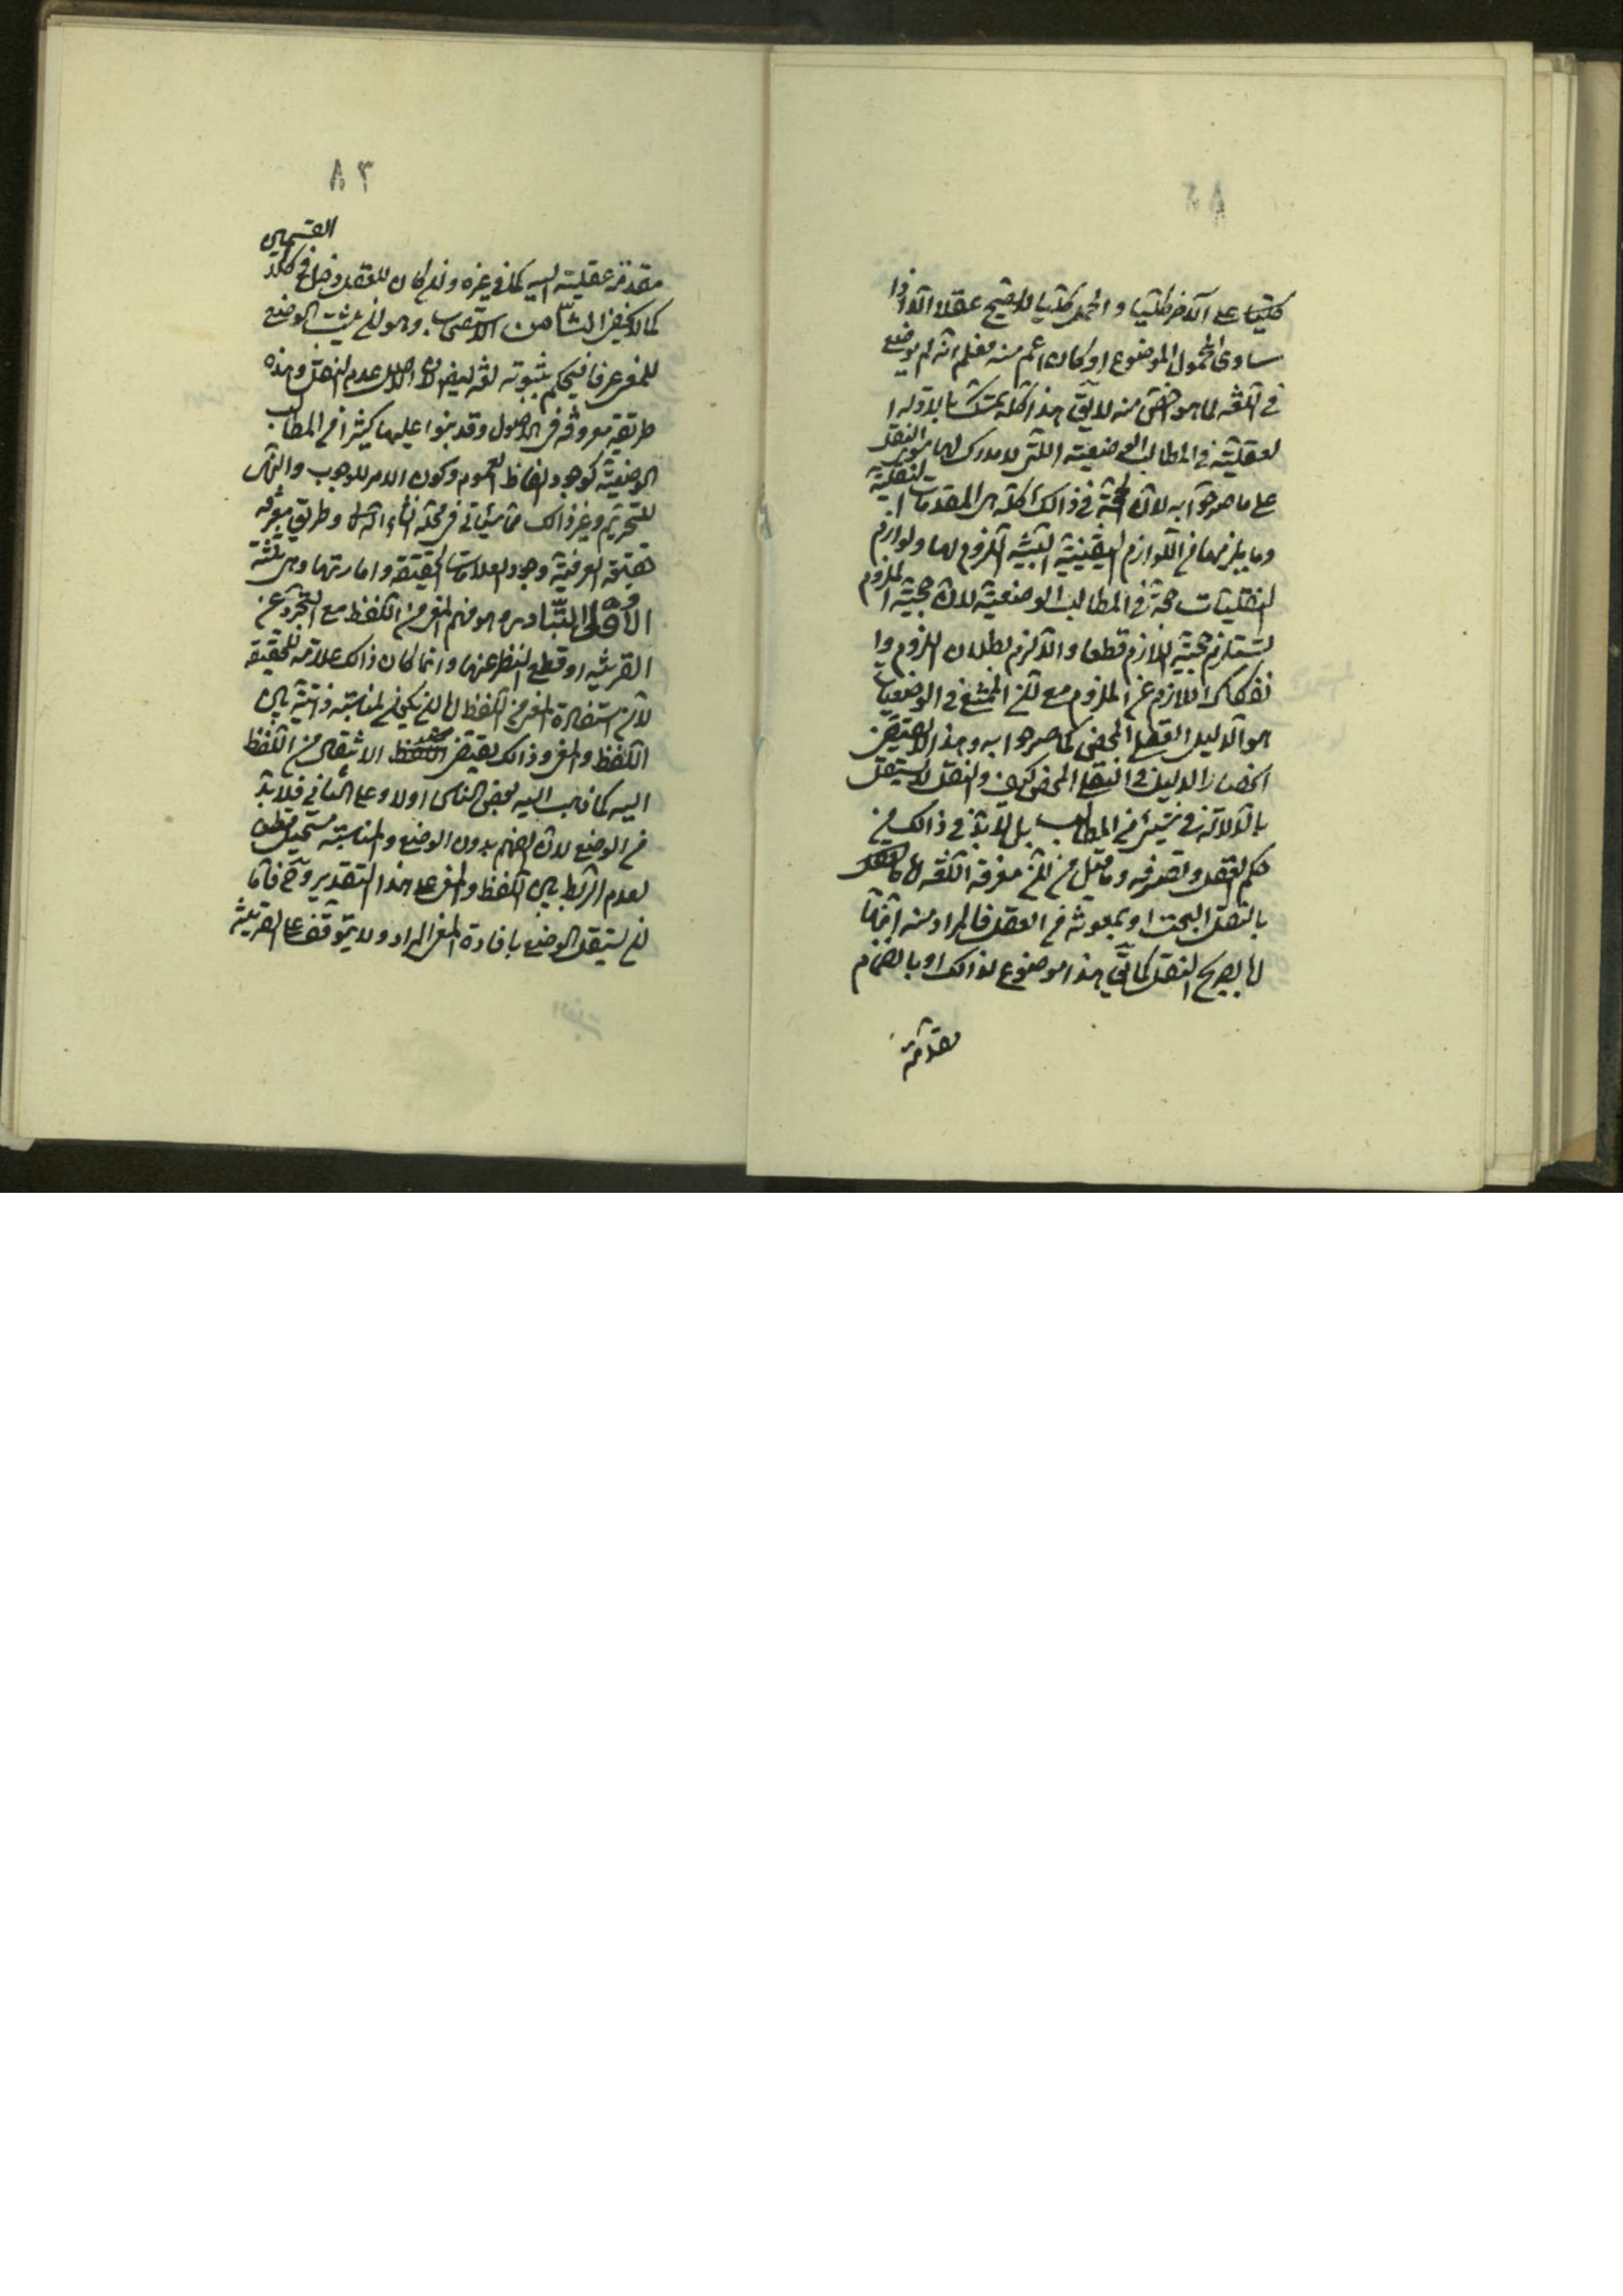 كليا على الآخر كليا و الحمل كليا لا يصح عقلا الا اذا
ساوى المحمول الموضوع او كان اعم منه فعلم انه لم يوضع
في اللغه لما هو اخص منه لا يق هذا كله تمسك بالادلة ا
لعقلية في المطالب الوضعية اللتى لا مدرك لها سوى النقل
على ما صرحوا به لان الحجة في ذالك كله هى المقدمات النقلية
وما يلزمها من اللوازم اليقينية البينة اللزوم لها ولوازم
النقليات حجة في المطالب الوضعية لان حجية الملزوم
تستلزم حجية اللازم قطعا والا لزم بطلان اللزوم وا
نفكاك اللازم عن الملزوم مع ان الممتنع في الوضعيات
هو الدليل العقلى المحض كما صرحوا به وهذا لا يقتضى
انحصار الدليل في النقلى المحض كيف والنقل لا يستقل
بالدلالة في شيئ من المطالب بل لا بد في ذالك من
حكم العقل وتصرفه وما قيل من ان معرفة اللغه اما
بالنقل البحت او بمعونة من العقل فالمراد منه اثباتها
اما بصريح النقل كما يق هذا موضوع لذالك او بانضمام
مقدمة
٨٣
مقدمة عقلية اليه كما في غيره وان كان للعقل مدخل في كلا
القسمين
كما لا يخفى الثامن الاستصحاب وهو ان يثبت الوضع
للمعنى عرفا فيحكم بثبوته لغه ايضا لان الاصل عدم النقل وهذه
طريقه معروفه في الاصول وقد بنوا عليها كثيرا من المطالب
الوضعية كوجود الفاظ العموم وكون الامر للوجوب والنهى
للتحريم وغير ذالك مما سيأتى في محله انشاء الله وطريق معرفة
حقيقه العرفية وجود العلامات الحقيقه وامارتها وهى ثلثة
الاول التبادر وهو فهم المعنى من اللفظ مع التجرد عن
القرينه او قطع النظر عنها وانما كان ذالك علامة للحقيقه
لان استفادة المعنى من اللفظ اما ان يكون لمناسبة ذاتية بين
اللفظ والمعنى وذالك يقتضى الانتقال من اللفظ
اليه كما ذهب اليه بعض الناس اولا وعلى الثانى فلا بد
من الوضع لان الفهم بدون الوضع والمناسبة مستحيل قطعا
لعدم الربط بين اللفظ والمعنى على هذا التقدير وح فاما
ان يستقل الوضع بافادة المعنى المراد ولا يتوقف على القرينة